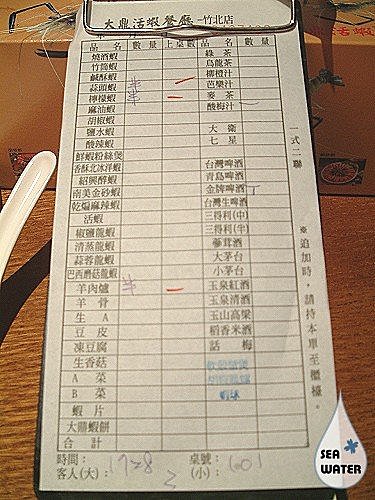 大鼎活蝦餐廳-竹北店
品名 數量 上桌數 品名 數量
燒酒蝦 綠茶
竹筒蝦 烏龍茶
鹹酥蝦 柳橙汁
蒜頭蝦 半 芭樂汁
檸檬蝦 半 麥茶
麻油蝦 酸梅汁
胡椒蝦
鹽水蝦 大衛
酸辣蝦 七星
鮮蝦粉絲煲
香酥北冰洋蝦 台灣啤酒
紹興醉蝦 青島啤酒
南美金砂蝦 金牌啤酒
乾煸麻辣蝦 台灣生啤酒
活蝦 三得利(中)
椒鹽龍蝦 三得利(半)
清蒸龍蝦 蔘茸酒
蒜蓉龍蝦 大茅台
巴西磨菇龍蝦 小茅台
羊肉爐 半 玉泉紅酒
羊骨 玉泉清酒
生A 玉山高粱
豆皮 稻香米酒
凍豆腐 話梅
生香菇
A菜
B菜 蝦球
蝦片
大鼎蝦餅
合計
時間: 1728 桌號: 601
客人(大): 2 (小):
一式二聯
※追加時,請持本單至櫃檯。
SEA
WATER